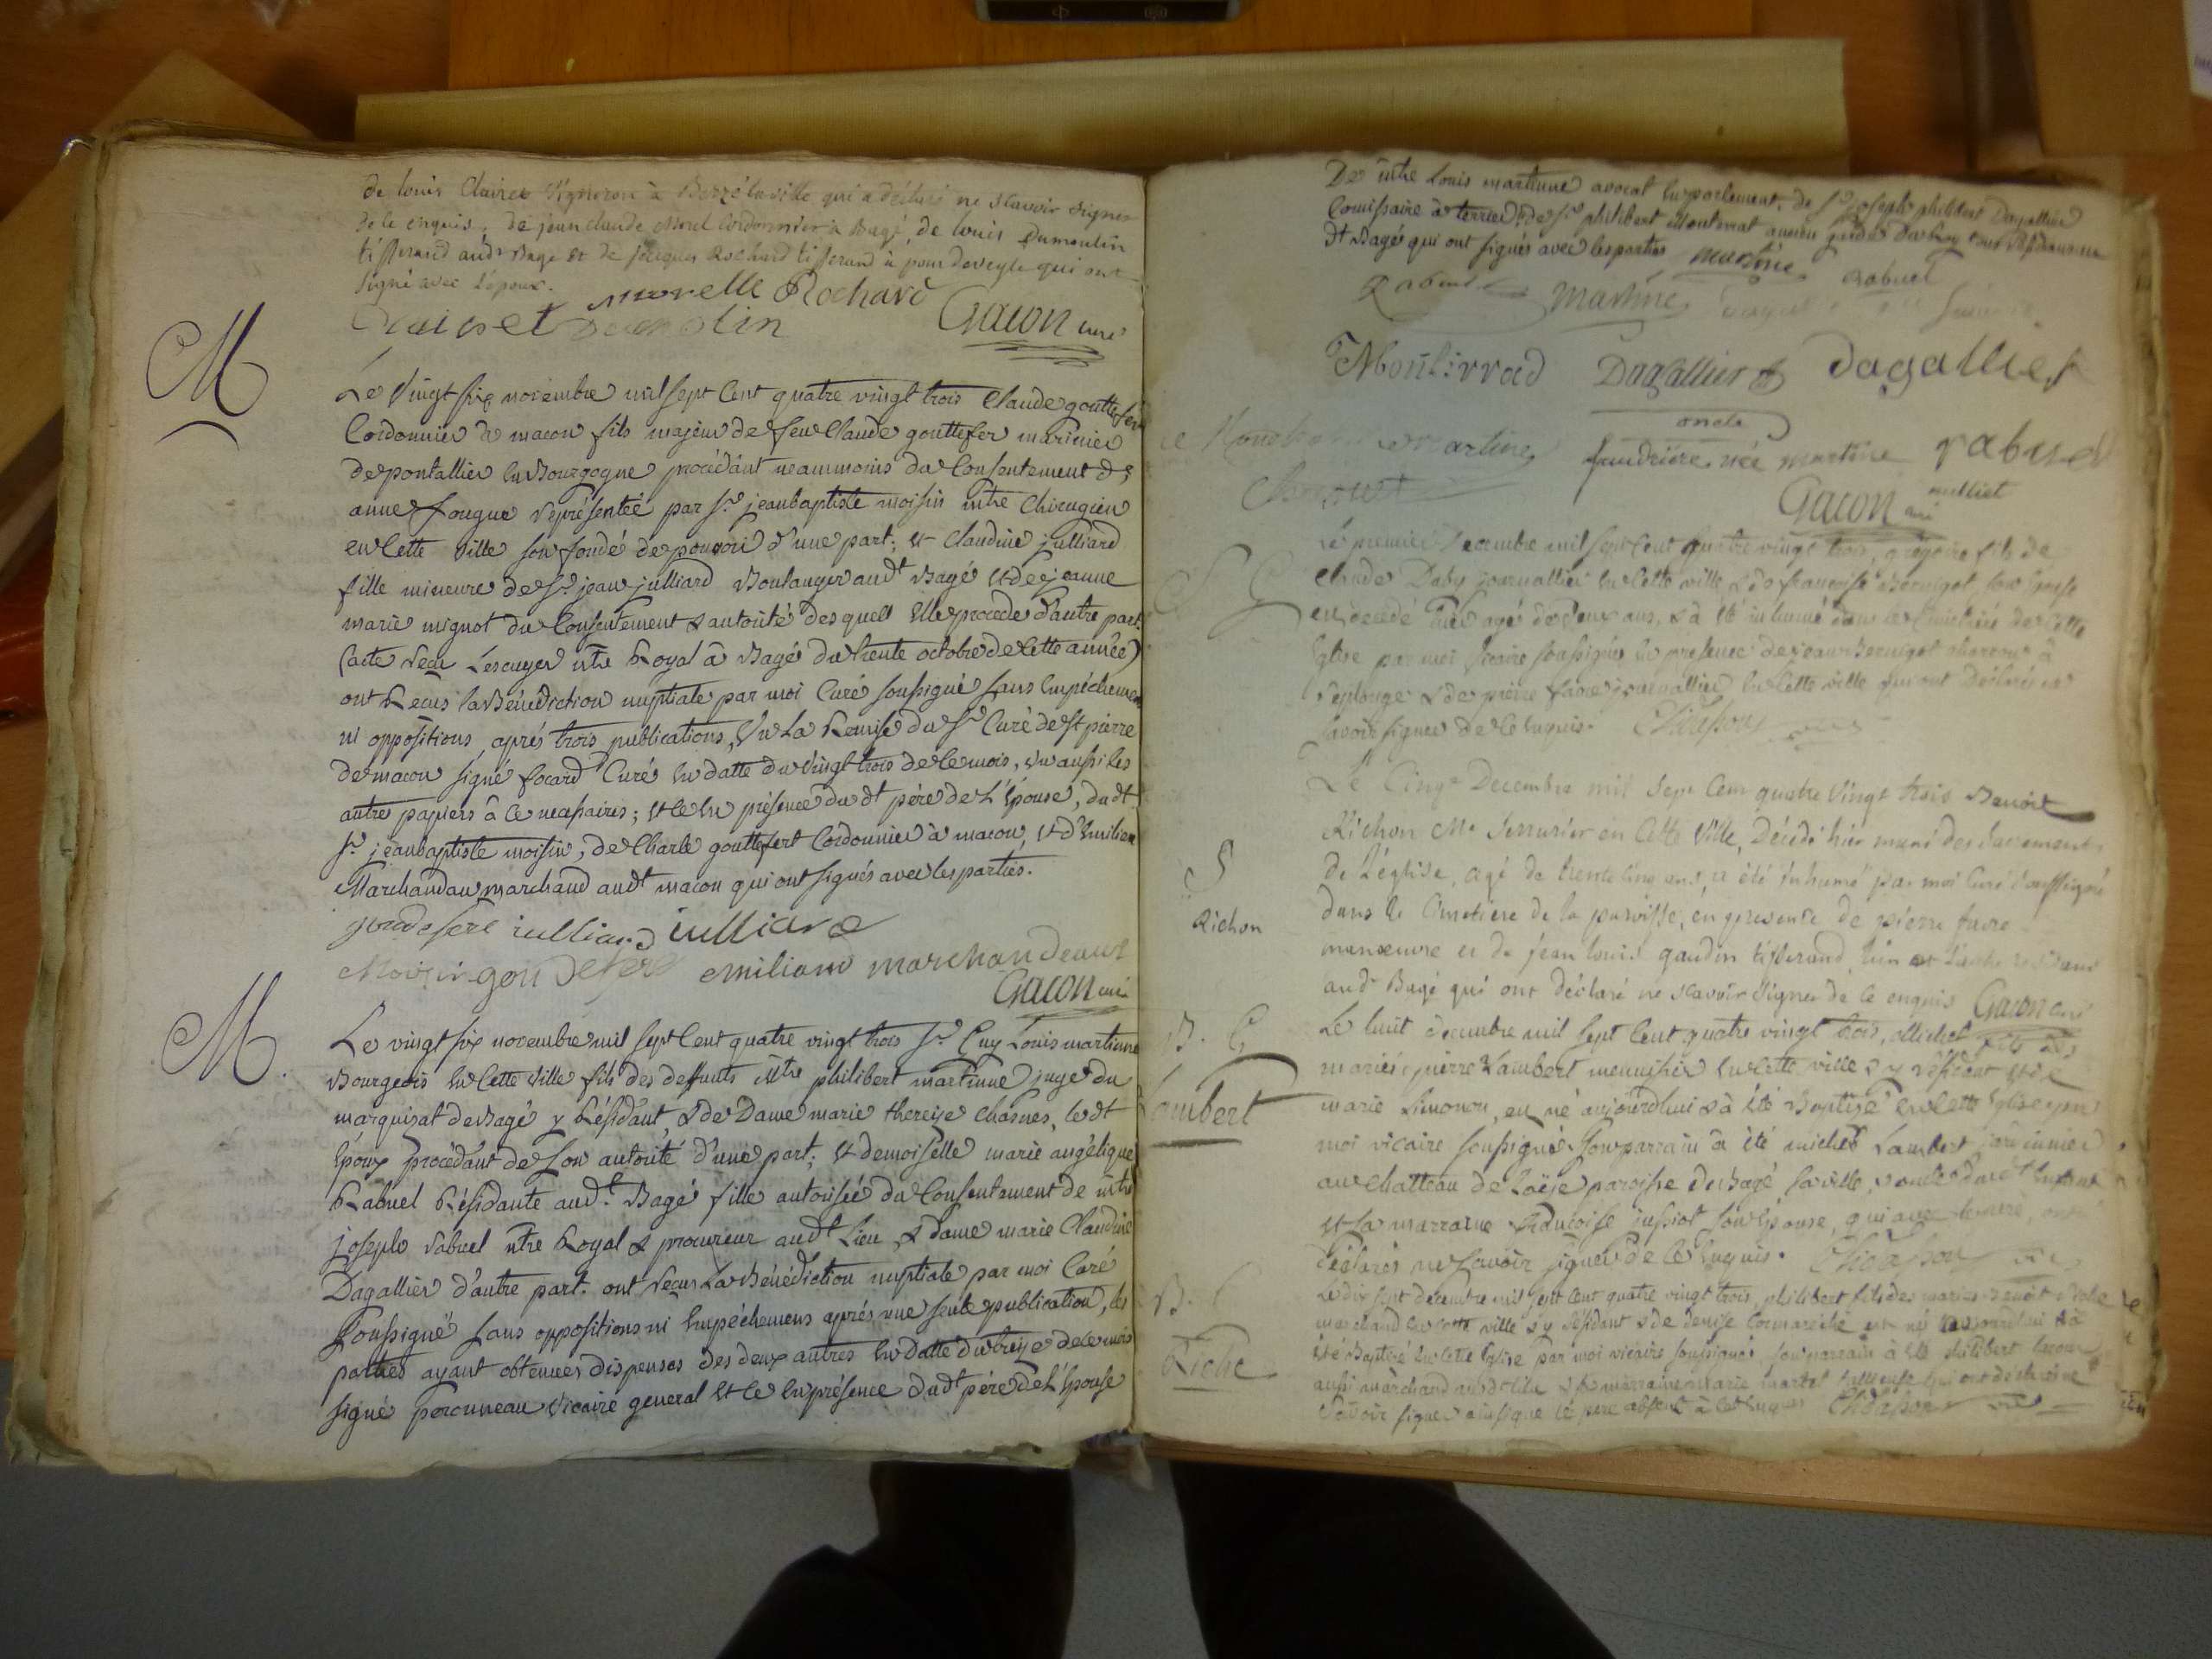 de louis Clairet vigneron à Berzé laville qui a déclaré ne scavoir signer
de ce enquis, de jean claude Morel Cordonnier à Bagé, de louis Dumoulin
tisserand audt Bagé et de jacques Rochard tisserand à pont deveyle qui ont
signé avec l'époux.
Murelle Rochard
Clairet Dumolin Gacon curé
M
Le vingt six novembre mil sept cent quatre vingt trois Claude gouttefer
Cordonnier de macon fils majeur de feu Claude gouttefer marinier
de pontallier en Bourgogne procédant neanmoins du Consentement de
anne fougue représentée par sr. jean baptiste moisin mtre chirugien
en cette ville son fondé de pouvoir d'une part; et Claudine julliard
fille mineure de sr. jean julliard Boulanger audt Bagé et de jeanne
marie mignot du Consentement & autorité desquels elle procede d'autre part
(acte reçu Lescuyer ntre Royal à Bagé du trente octobre de cette année)
ont Reçus la Bénédiction nuptiale par moi Curé soussigné sans Empêchement
ni oppositions, après trois publications, Vu La Remise du sr. Curé de St pierre
de macon signé focard Curé en datte du vingt trois de ce mois, vu aussi les
autre papiers à ce necessaires; et ce en présence du dt père de L'épouse, dudt
sr. jean baptiste moisin, de Charle gouttefert Cordonnier à macon, et d'Emilien
Marchandau marchand audt macon qui ont signés avec les parties.
goudefert julliard julliard
Moisin goudefert emiliand marchandeaux
Gacon curé
M.
Le vingt six novembre mil sept cent quatre vingt trois sr. Guy Louis martinne
Bourgeois en cette ville fils des deffunts Mtre philibert martinne juge du
marquisat de Bagé y Résidant, & de Dame marie thereise Chasnes, le dt
époux procédant de son autorité d'une part; et demoiselle marie angélique
Rabuel Résidante audt. Bagé fille autorisée du Consentement de mtre
joseph rabuel ntre Royal & procureur audt Lieu & dame marie Claudine
Dagallier d'autre part. ont reçus La Bénédiction nuptiale par moi Curé
soussigné sans oppositions ni Empêchemens après une seule publication, les
parties ayant obtenues dispenses des deux autres en datte du treize de ce mois
signé peronneau vicaire general et ce en présence dudt père de L'épouse
De mtre Louis martinne avocat en parlement, de sr. joseph philibert Dagallier
Comissaire à terrier, de sr. philibert Monterrat ancien garde du Roy tous Résidans au
dt Bagé qui ont signés avec les parties martine rabuel
Rabuel Martine
Monterrad Dagallier Dagallier
oncle
martine faudriere née martine rabuel
Gacon curé
Le premier Decembre mil sept cent quatre vingt trois, grégoire fils de
Claude Daby journallier en cette ville & de françoise Bernigot son épouse
est decedé hier agé de deux ans, & a été inhumé dans le Cimetière de cette
Eglise par moi vicaire soussigné en presence de jean Bernigot charron à
replonge & de pierre favre journallier en cette ville qui ont déclarés ne
savoir signer de ce enquis.
Le Cinqe Decembre mil sept Cent quatre Vingt trois Benoit
S
Richon
Richon Me Serrurier en Cette Ville, Décédé hier muni des Sacremens
de L'église, agé de trente Cinq ans, a été inhumé par moi Curé soussigné
dans le Cimetiere de la paroisse, en presence de pierre favre
manoeuvre et de jean louis gaudin tisserand, l'un et l'autre residans
audt Bagé qui ont déclaré ne scavoir signer de ce enquis Gacon curé
B. G
Lambert
Le huit decembre mil sept cent quatre vingt trois, Michel fils des
mariés pierre Lambert menuisier en cette ville & y résidant et de
marie Limonon, est né aujourdhui & à été Baptisé en cette Eglise par
moi vicaire soussigné. Son parrain à été michel Lambert jardinier
au Chatteau de Loëse paroisse de Bagé la ville, oncle dudt Enfant
et la marraine françoise jussiot son épouse, qui avec le père, ont
déclarés ne savoir signer de ce Enquis.
B.
Riche
Le dix sept decembre mil sept cent quatre vingt trois, philibert fils des mariés Benoit Riche
marchand en cette ville & y résidant & de Denise Cormareche est né aujourdhui & à
été Baptisé en cette Eglise par moi vicaire soussigné, son parrain à été philibert
aussi marchand audt lieu & la marraine marie martel tailleuse qui ont déclarés ne
savoir signer ainsi que le père absent à ce Enquis